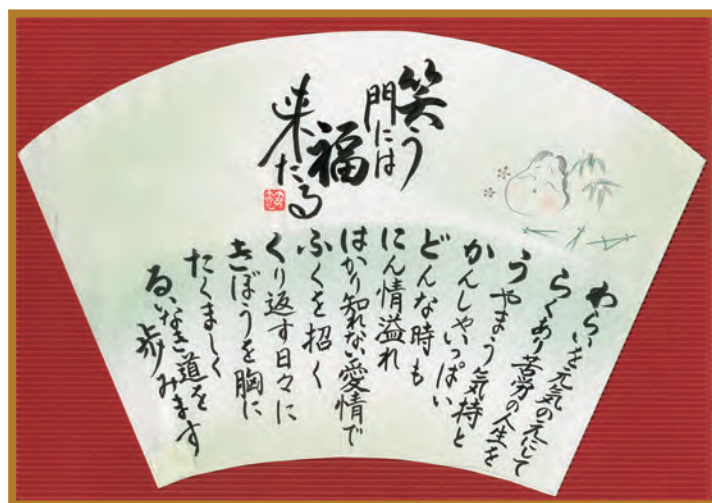 笑う
門には
福
来たる
わらいを元気の元にして
らくあり苦労の人生を
うやまう気持と
かんしゃいっぱい
どんな時も
にん情溢れ
はかり知れない愛情で
ふくを招く
くり返す日々に
きぼうを胸に
たくましく
るいなき道を
歩みます